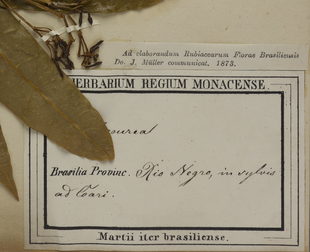 Ad elaborandum Rubiacearum Florae Brasiliensis
Do. J. Müller communicat. 1873.
HERBARIUM REGIUM MONACENSE.
Brasilia Provinc. Rio Negro, in sylvis
ad Coari.
Martii iter brasiliense.